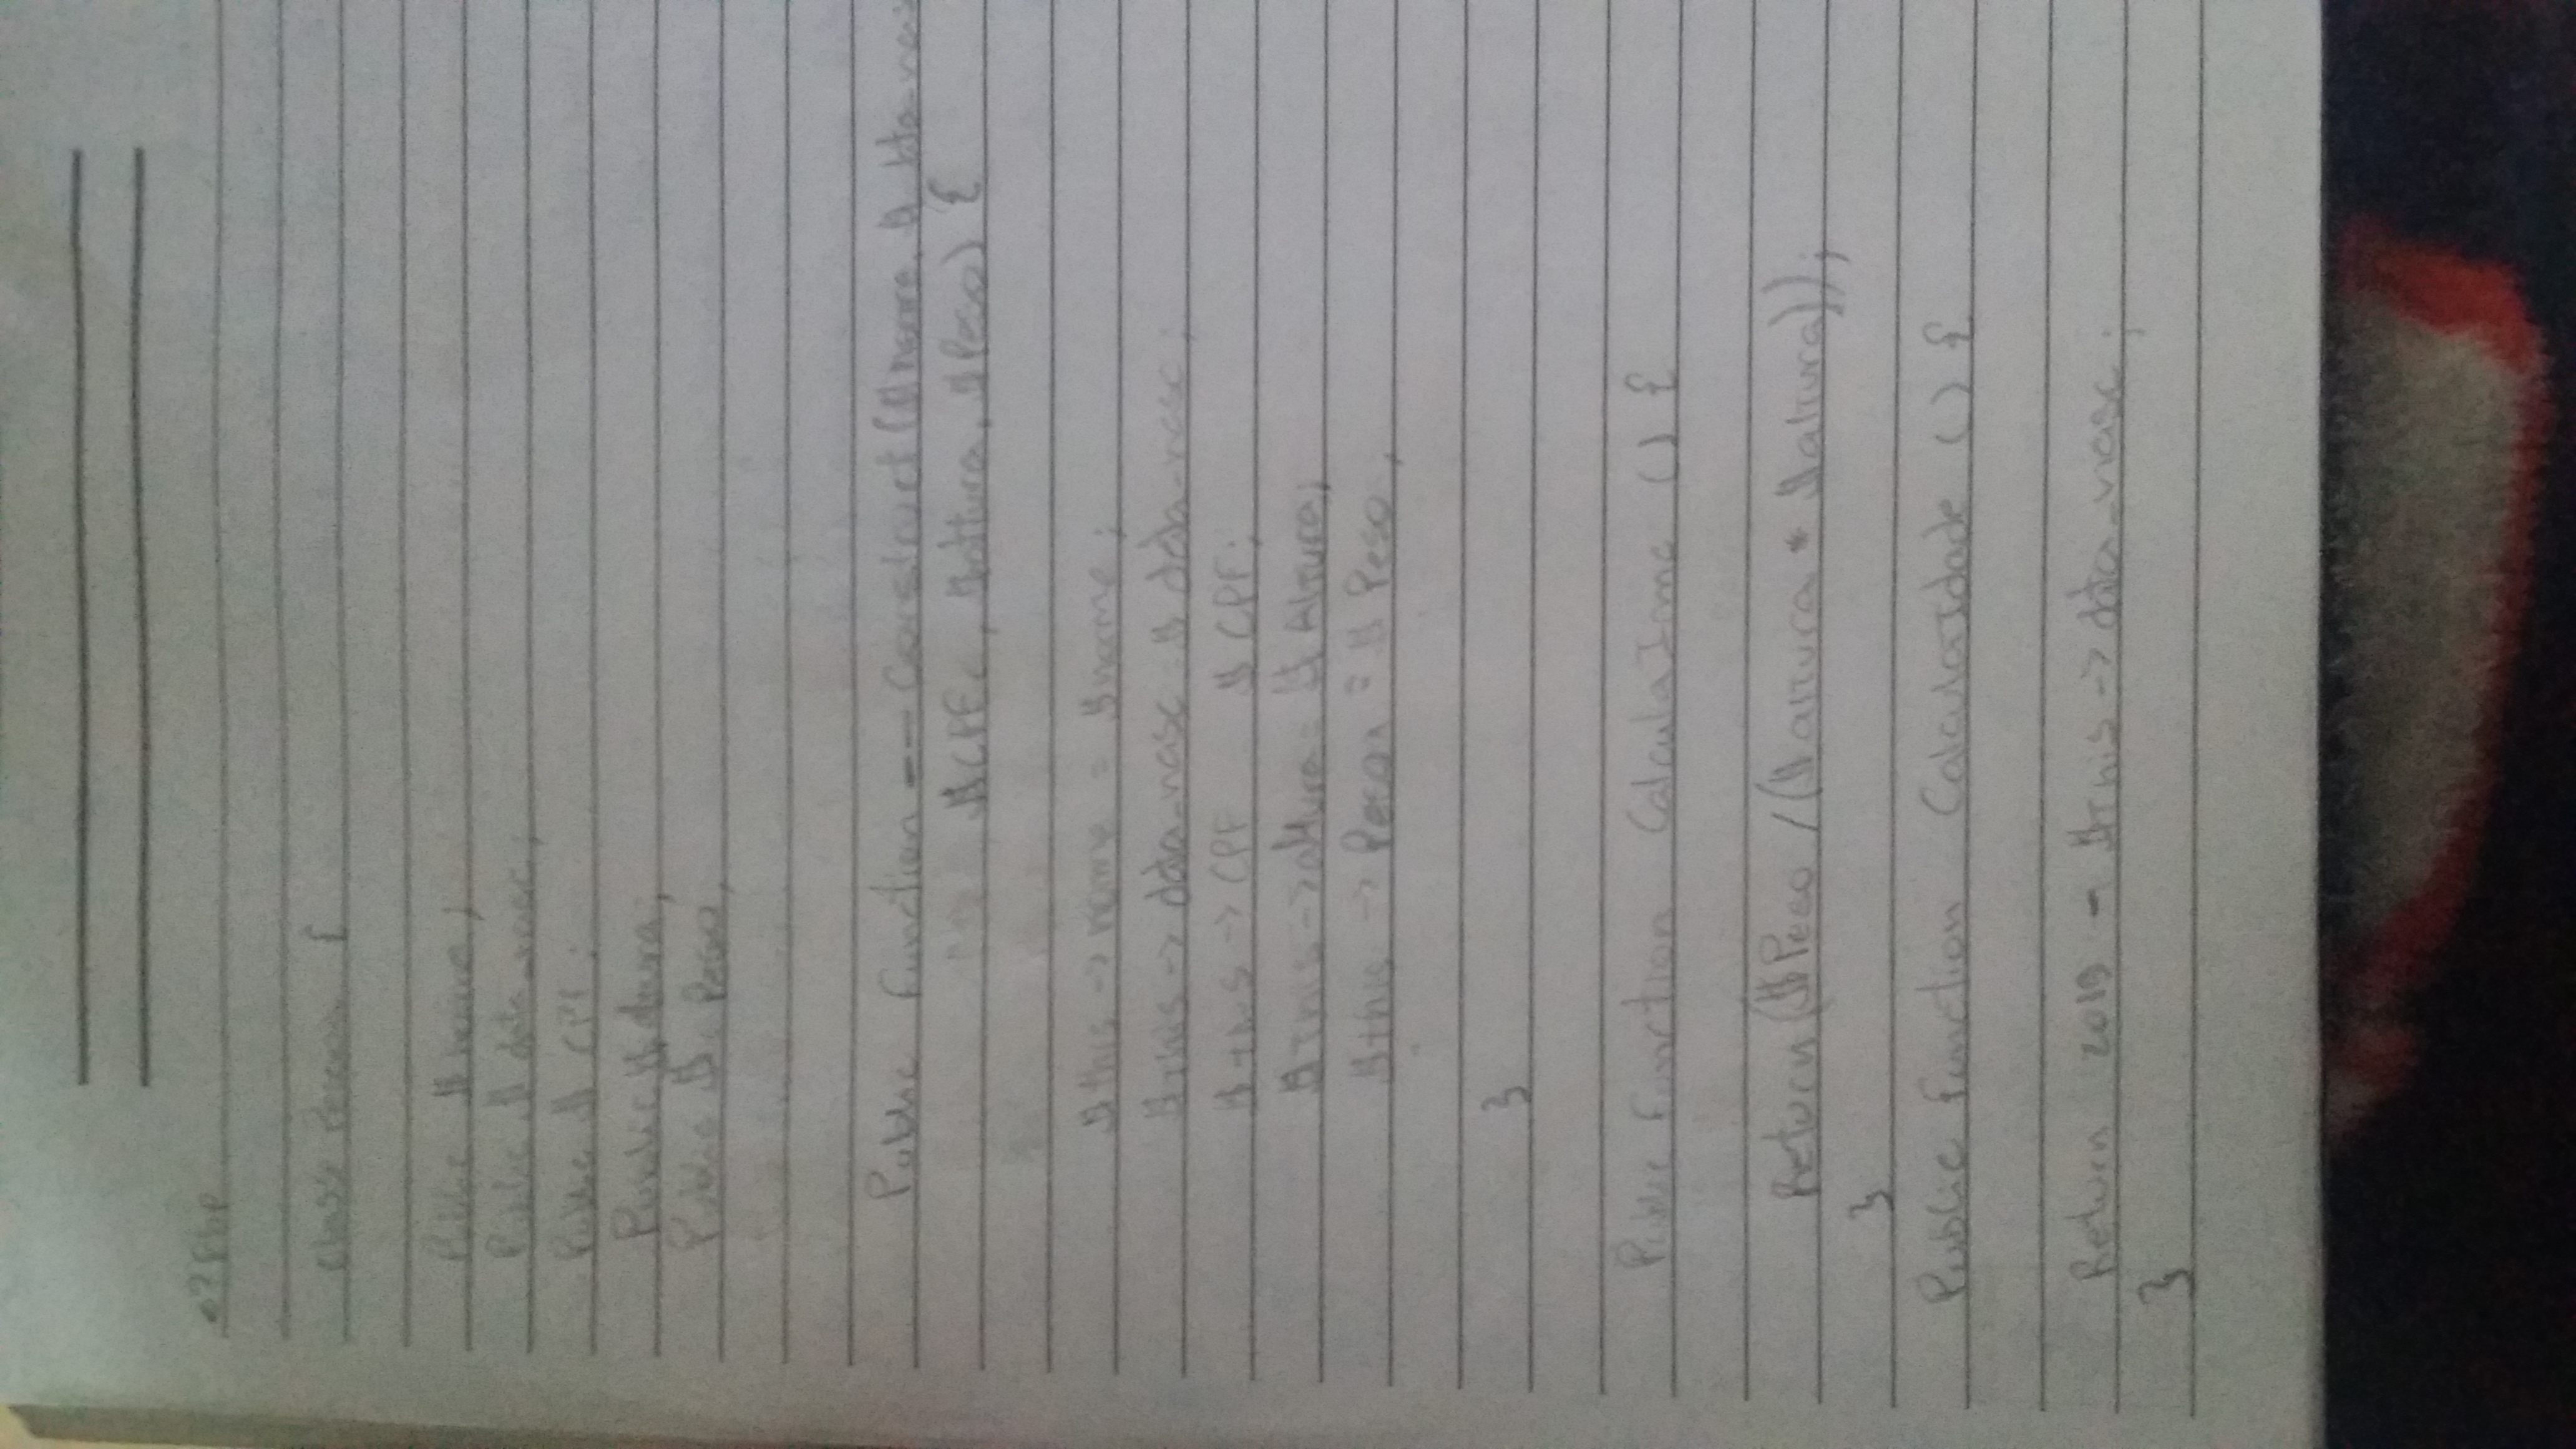 <?Php
Classe Pessoa {
Public $ nome;
Public $ data_nasc;
Public $ CPF;
Public $ altura;
Public $ Peso,
Public Function __ Construct ($nome, $ data_nas
$CPF, $altura, $Peso) {
$this -> nome = $nome;
$This -> data_nasc $ data_nasc;
$this -> CPF $ CPF;
$This -> altura = $ Altura;
$this -> = $ Peso,
}
Public Function Calcula Imc () {
Return ($Peso / ($altura * $altura));
}
Public Function CalculaIdade () {
Return 2019 - $This -> data_nasc;
}